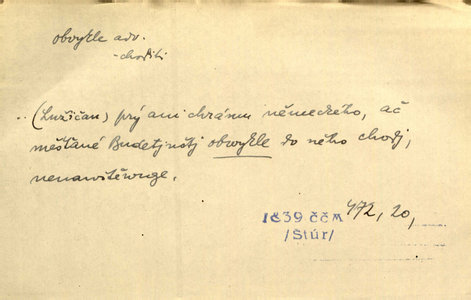 obvykle adv.
- choditi
.. (Lužičan) prý ani chrámu německého, ač
měšťané Budetjnštj obwykle do něho chodj,
nenawštěwuge.
1839 ččM 472, 20,
/Štúr/